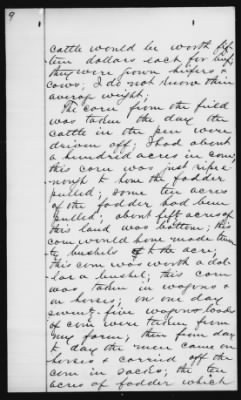 9
1
cattle would be worth fif-
teen dollars each for beef,
they were grown heifers &
cows; I do not know their
average weight;
The corn from the field
was taken the day the
cattle in the pen were
driven off; I had about
a hundred acres in corn;
this corn was just ripe
enough to have the fodder
pulled; some ten acres
of the fodder had been
pulled; about fift acres of
this land was bottom; this
corn would have made twen-
ty bushels to the acre;
This corn was worth a dol-
lar a bushel; this corn
was taken in wagons &
on horses; on one day
twenty five wagons loads
of corn were taken from
my farm; then from day
to day the men came on
horses & carried off the
corn in sacks; the ten
acres of fodder which